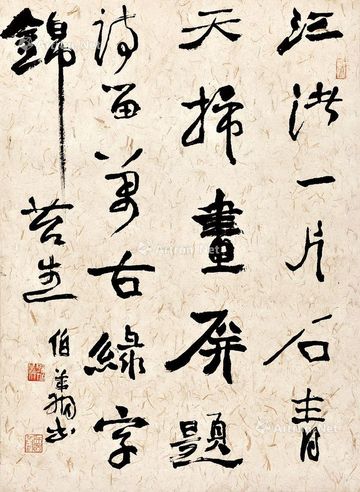 江渚一片石青
天掃畫屏題
詩留萬古綠字
錦苔生
伯
Artron.Net